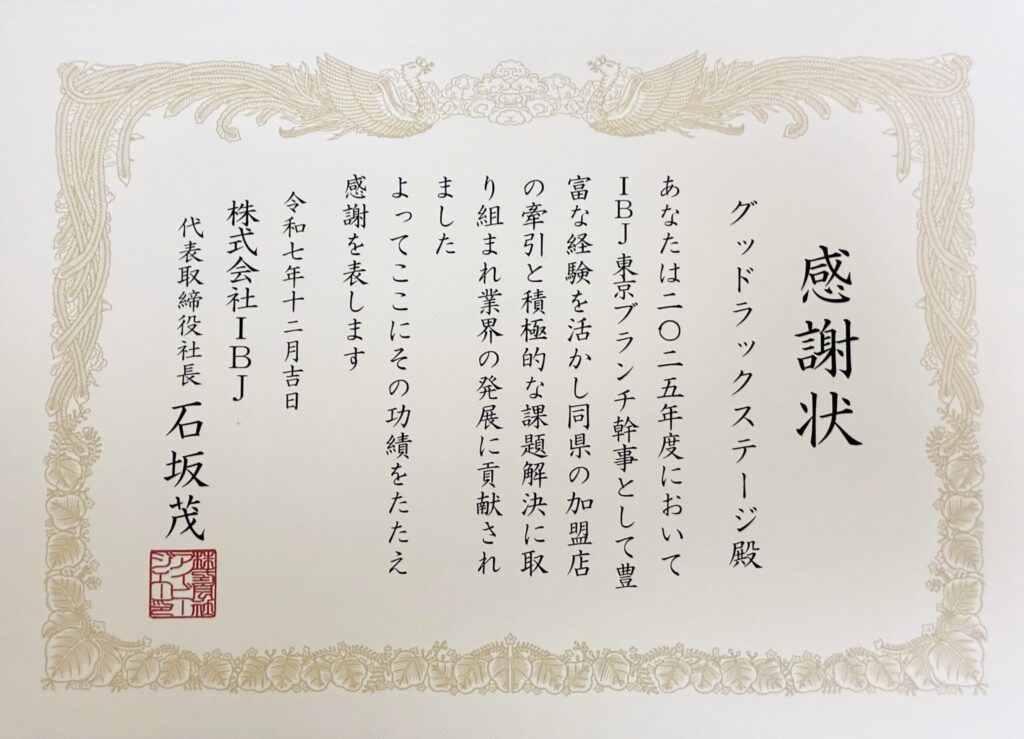 感謝状
グッドラックステージ殿
あなたは二〇二五年度において
ＩＢＪ東京ブランチ幹事として豊
富な経験を活かし同県の加盟店
の牽引と積極的な課題解決に取
り組まれ業界の発展に貢献され
ました
よってここにその功績をたたえ
感謝を表します
令和七年十二月吉日
株式会社ＩＢＪ
代表取締役社長 石坂茂